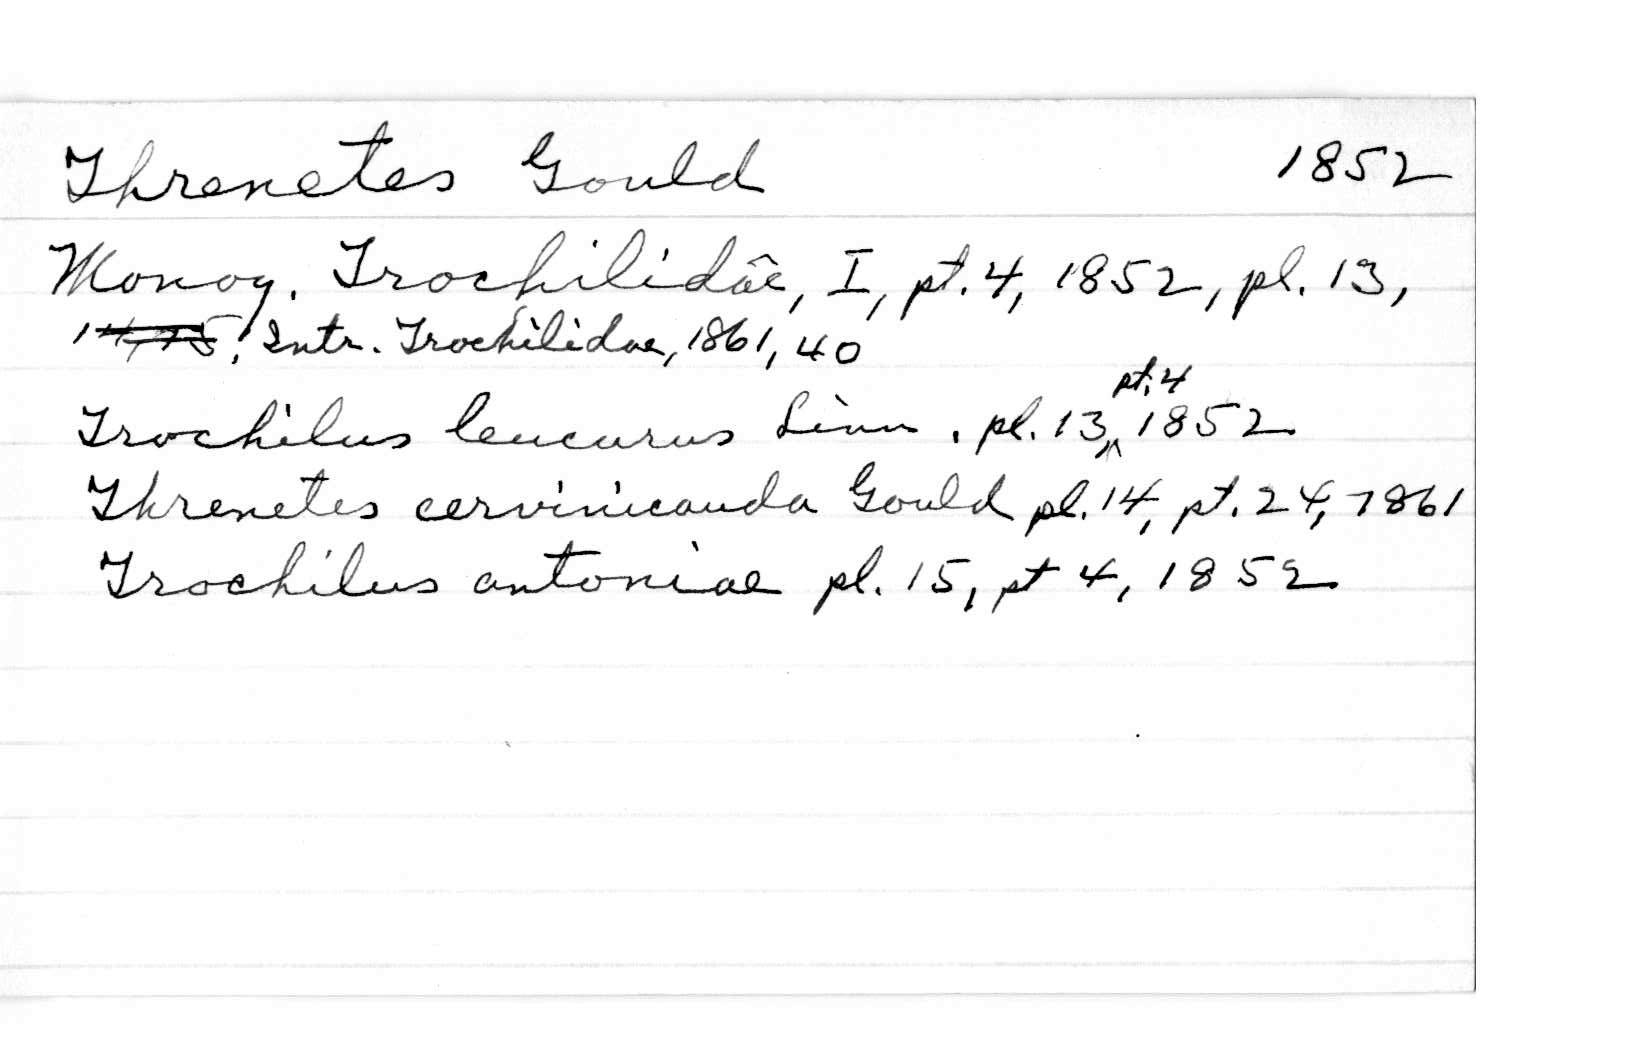 Threnetes Gould 1852
Monog. Trochilidae, I, pt. 4, 1852, pl. 13,
14, 15; Intr. Trochilidae, 1861, 40
Trochilus leucurus Linn. pl. 13, pt. 4 1852
Threnetes cervinicauda Gould pl. 14, pt. 24, 1861
Trochilus antoniae pl. 15, pt 4, 1852